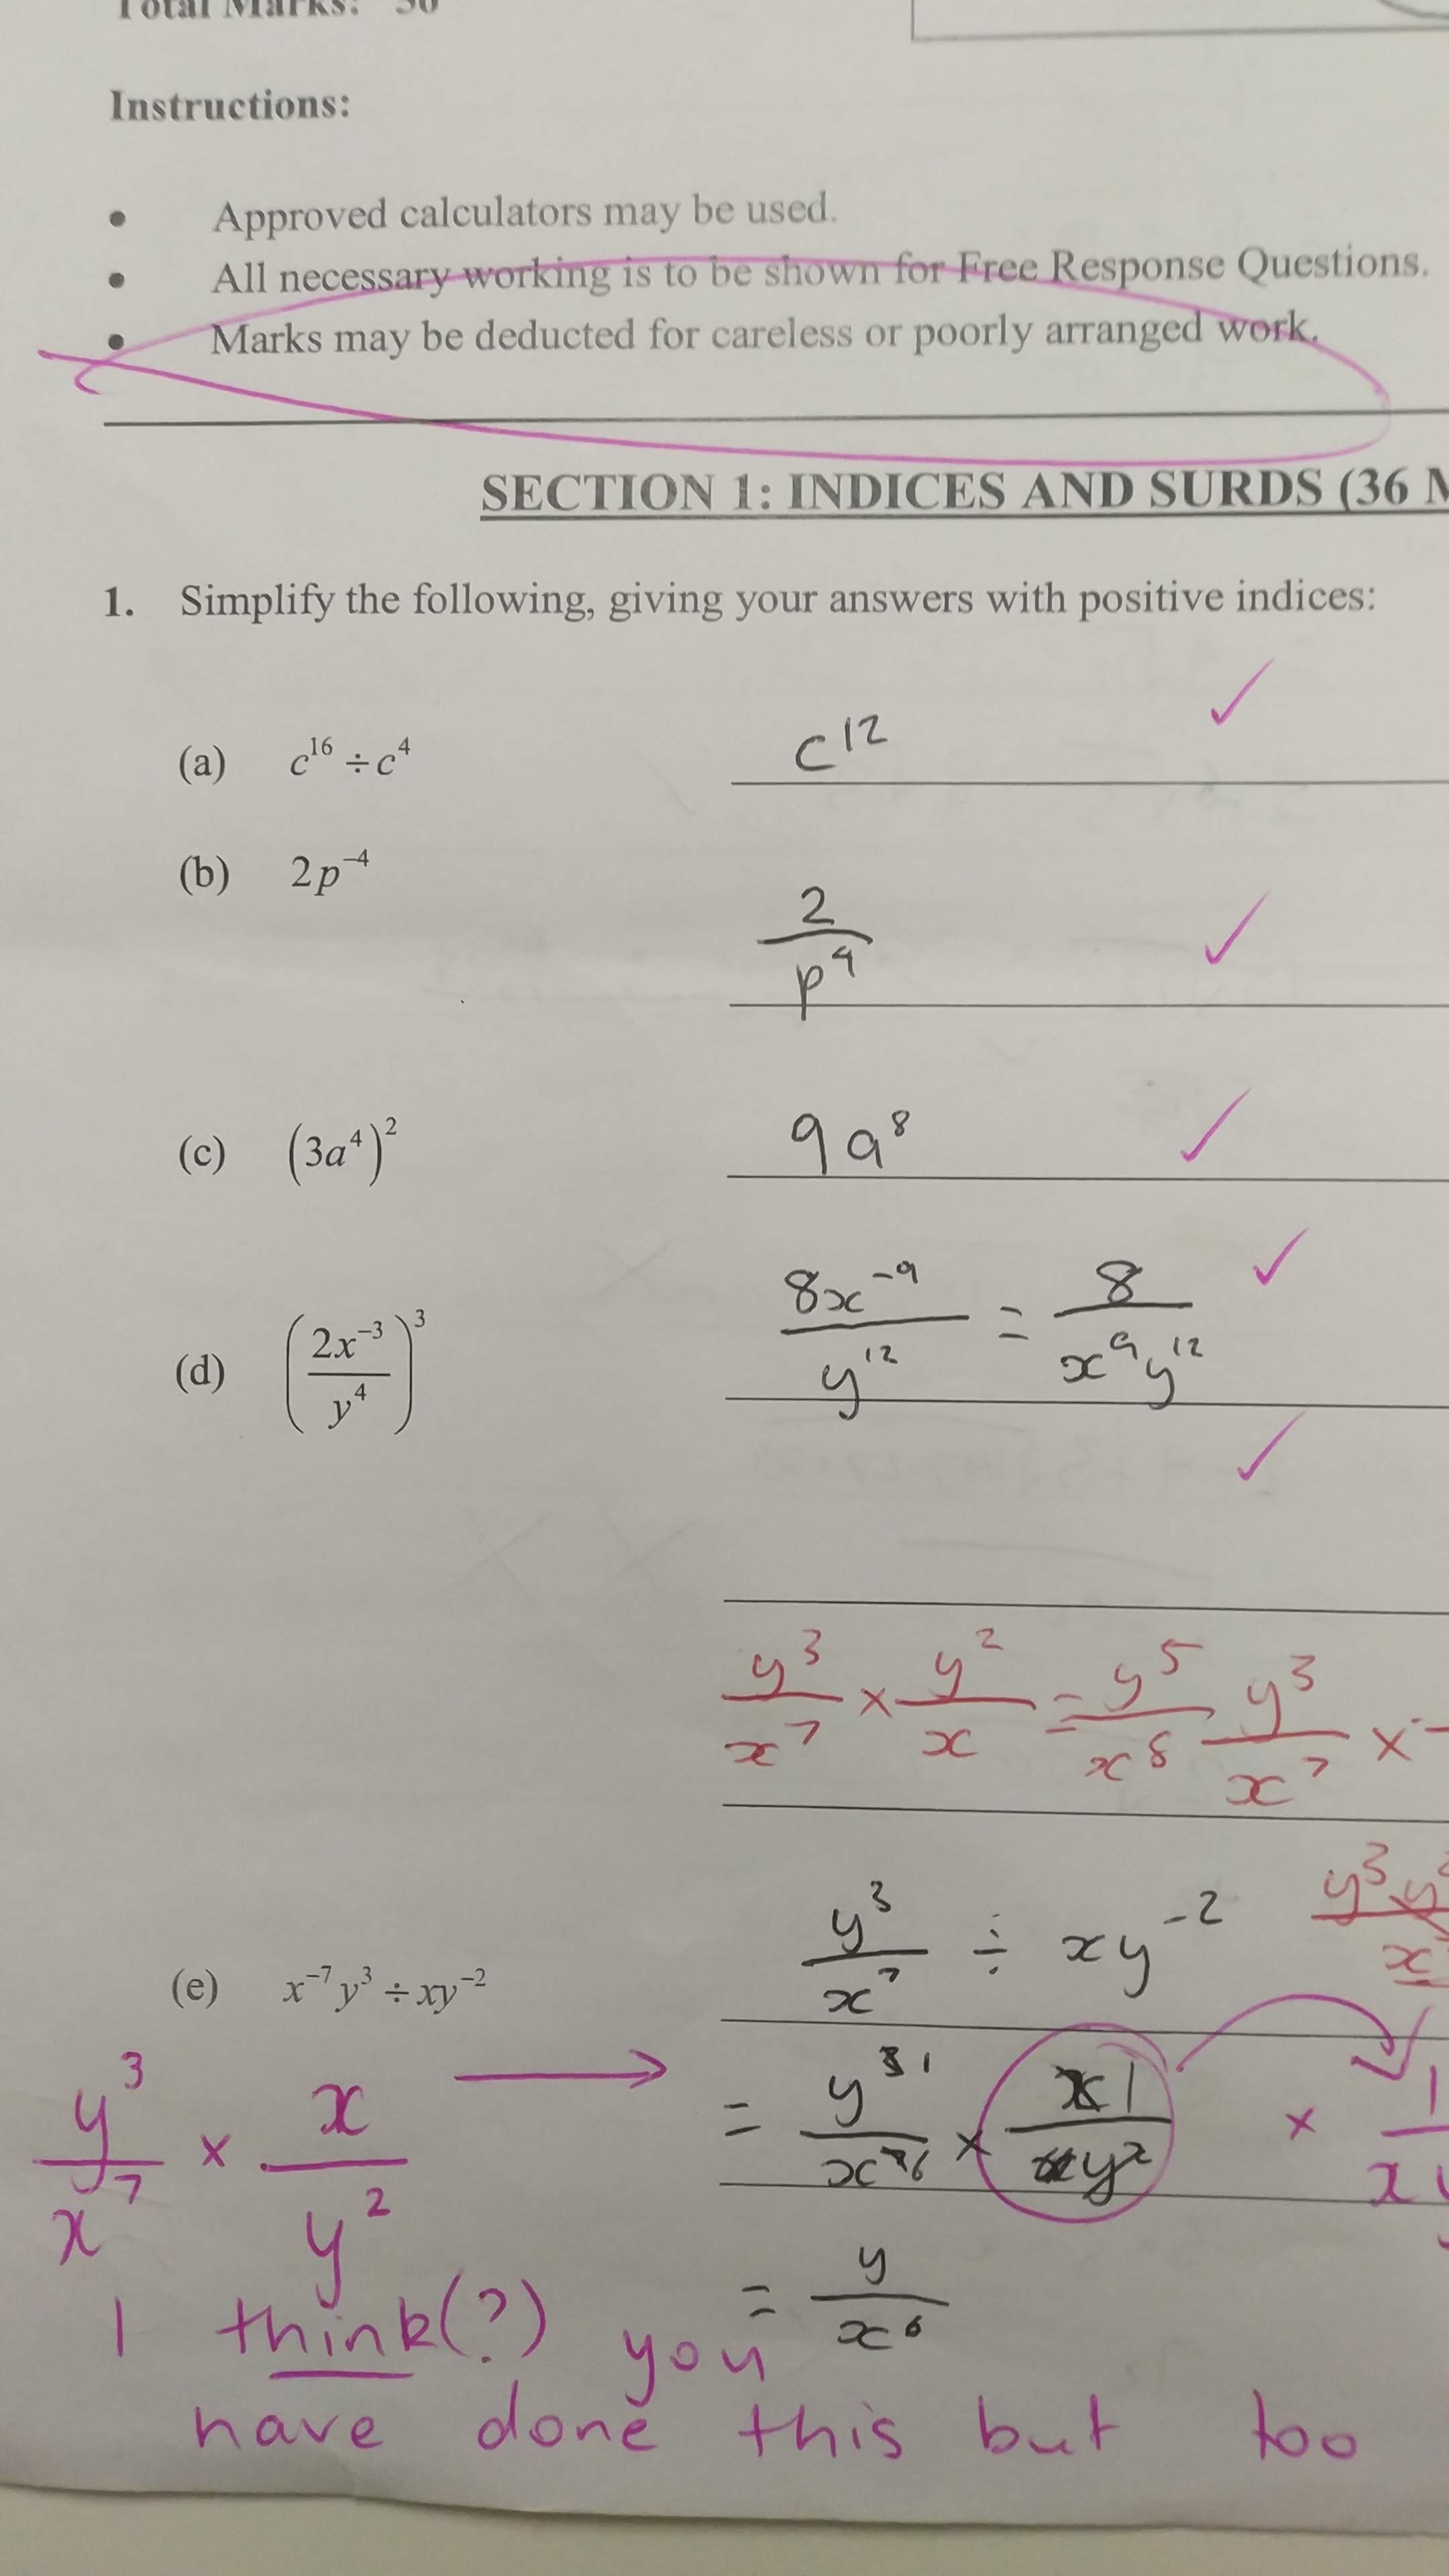 Total Marks: 50
Instructions:
• Approved calculators may be used.
• All necessary working is to be shown for Free Response Questions.
• Marks may be deducted for careless or poorly arranged work.
SECTION 1: INDICES AND SURDS (36 M
1. Simplify the following, giving your answers with positive indices:
(a) c^16 ÷ c^4 c^12 ✓
(b) 2p^-4 2/p^4 ✓
(c) (3a^4)^2 9a^8 ✓
(d) (2x^-3/y^4)^3 8x^-9/y^12 = 8/x^9y^12 ✓
✓
y^3/x^7 × y^2/x = y^5/x^8 y^3/x^7 ×
(e) x^-7y^3 ÷ xy^-2 y^3/x^7 ÷ xy^-2
y^3/x^7 × x/y^2 → = y^1/x^6 × 1/y^2 × 1/x
= y/x^6
I think(?) you
have done this but too